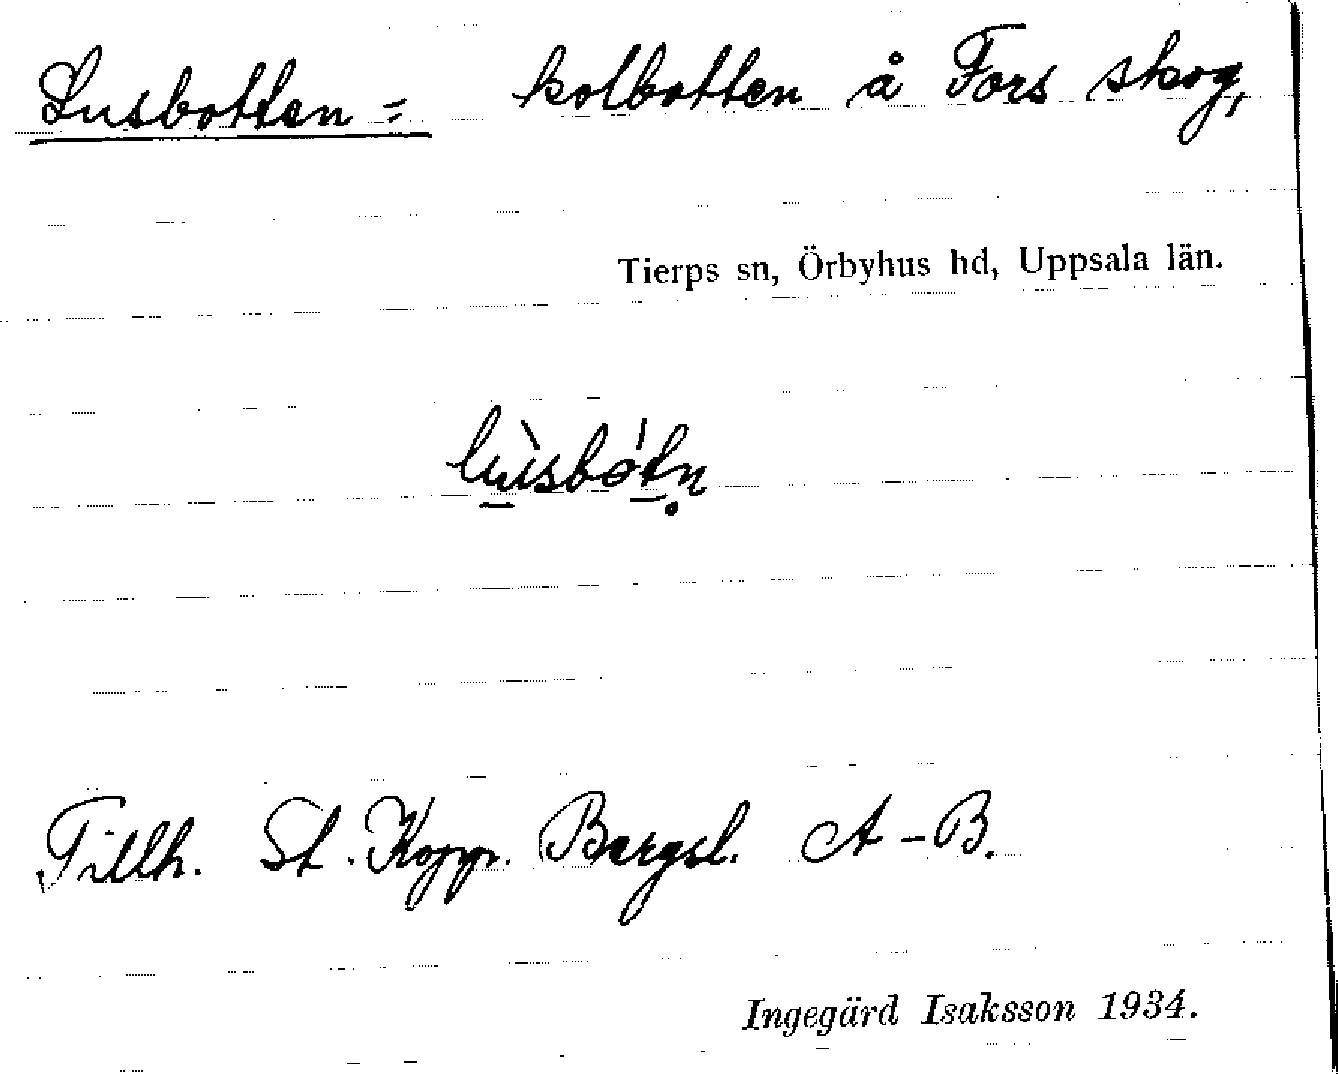 Lusbotten = kolbotten å Fors skog,
Tierps sn, Örbyhus hd, Uppsala län.
lùsbót̲n̥
Tillh. St. Kopp. Bergsl. A-B.
Ingegärd Isaksson 1934.